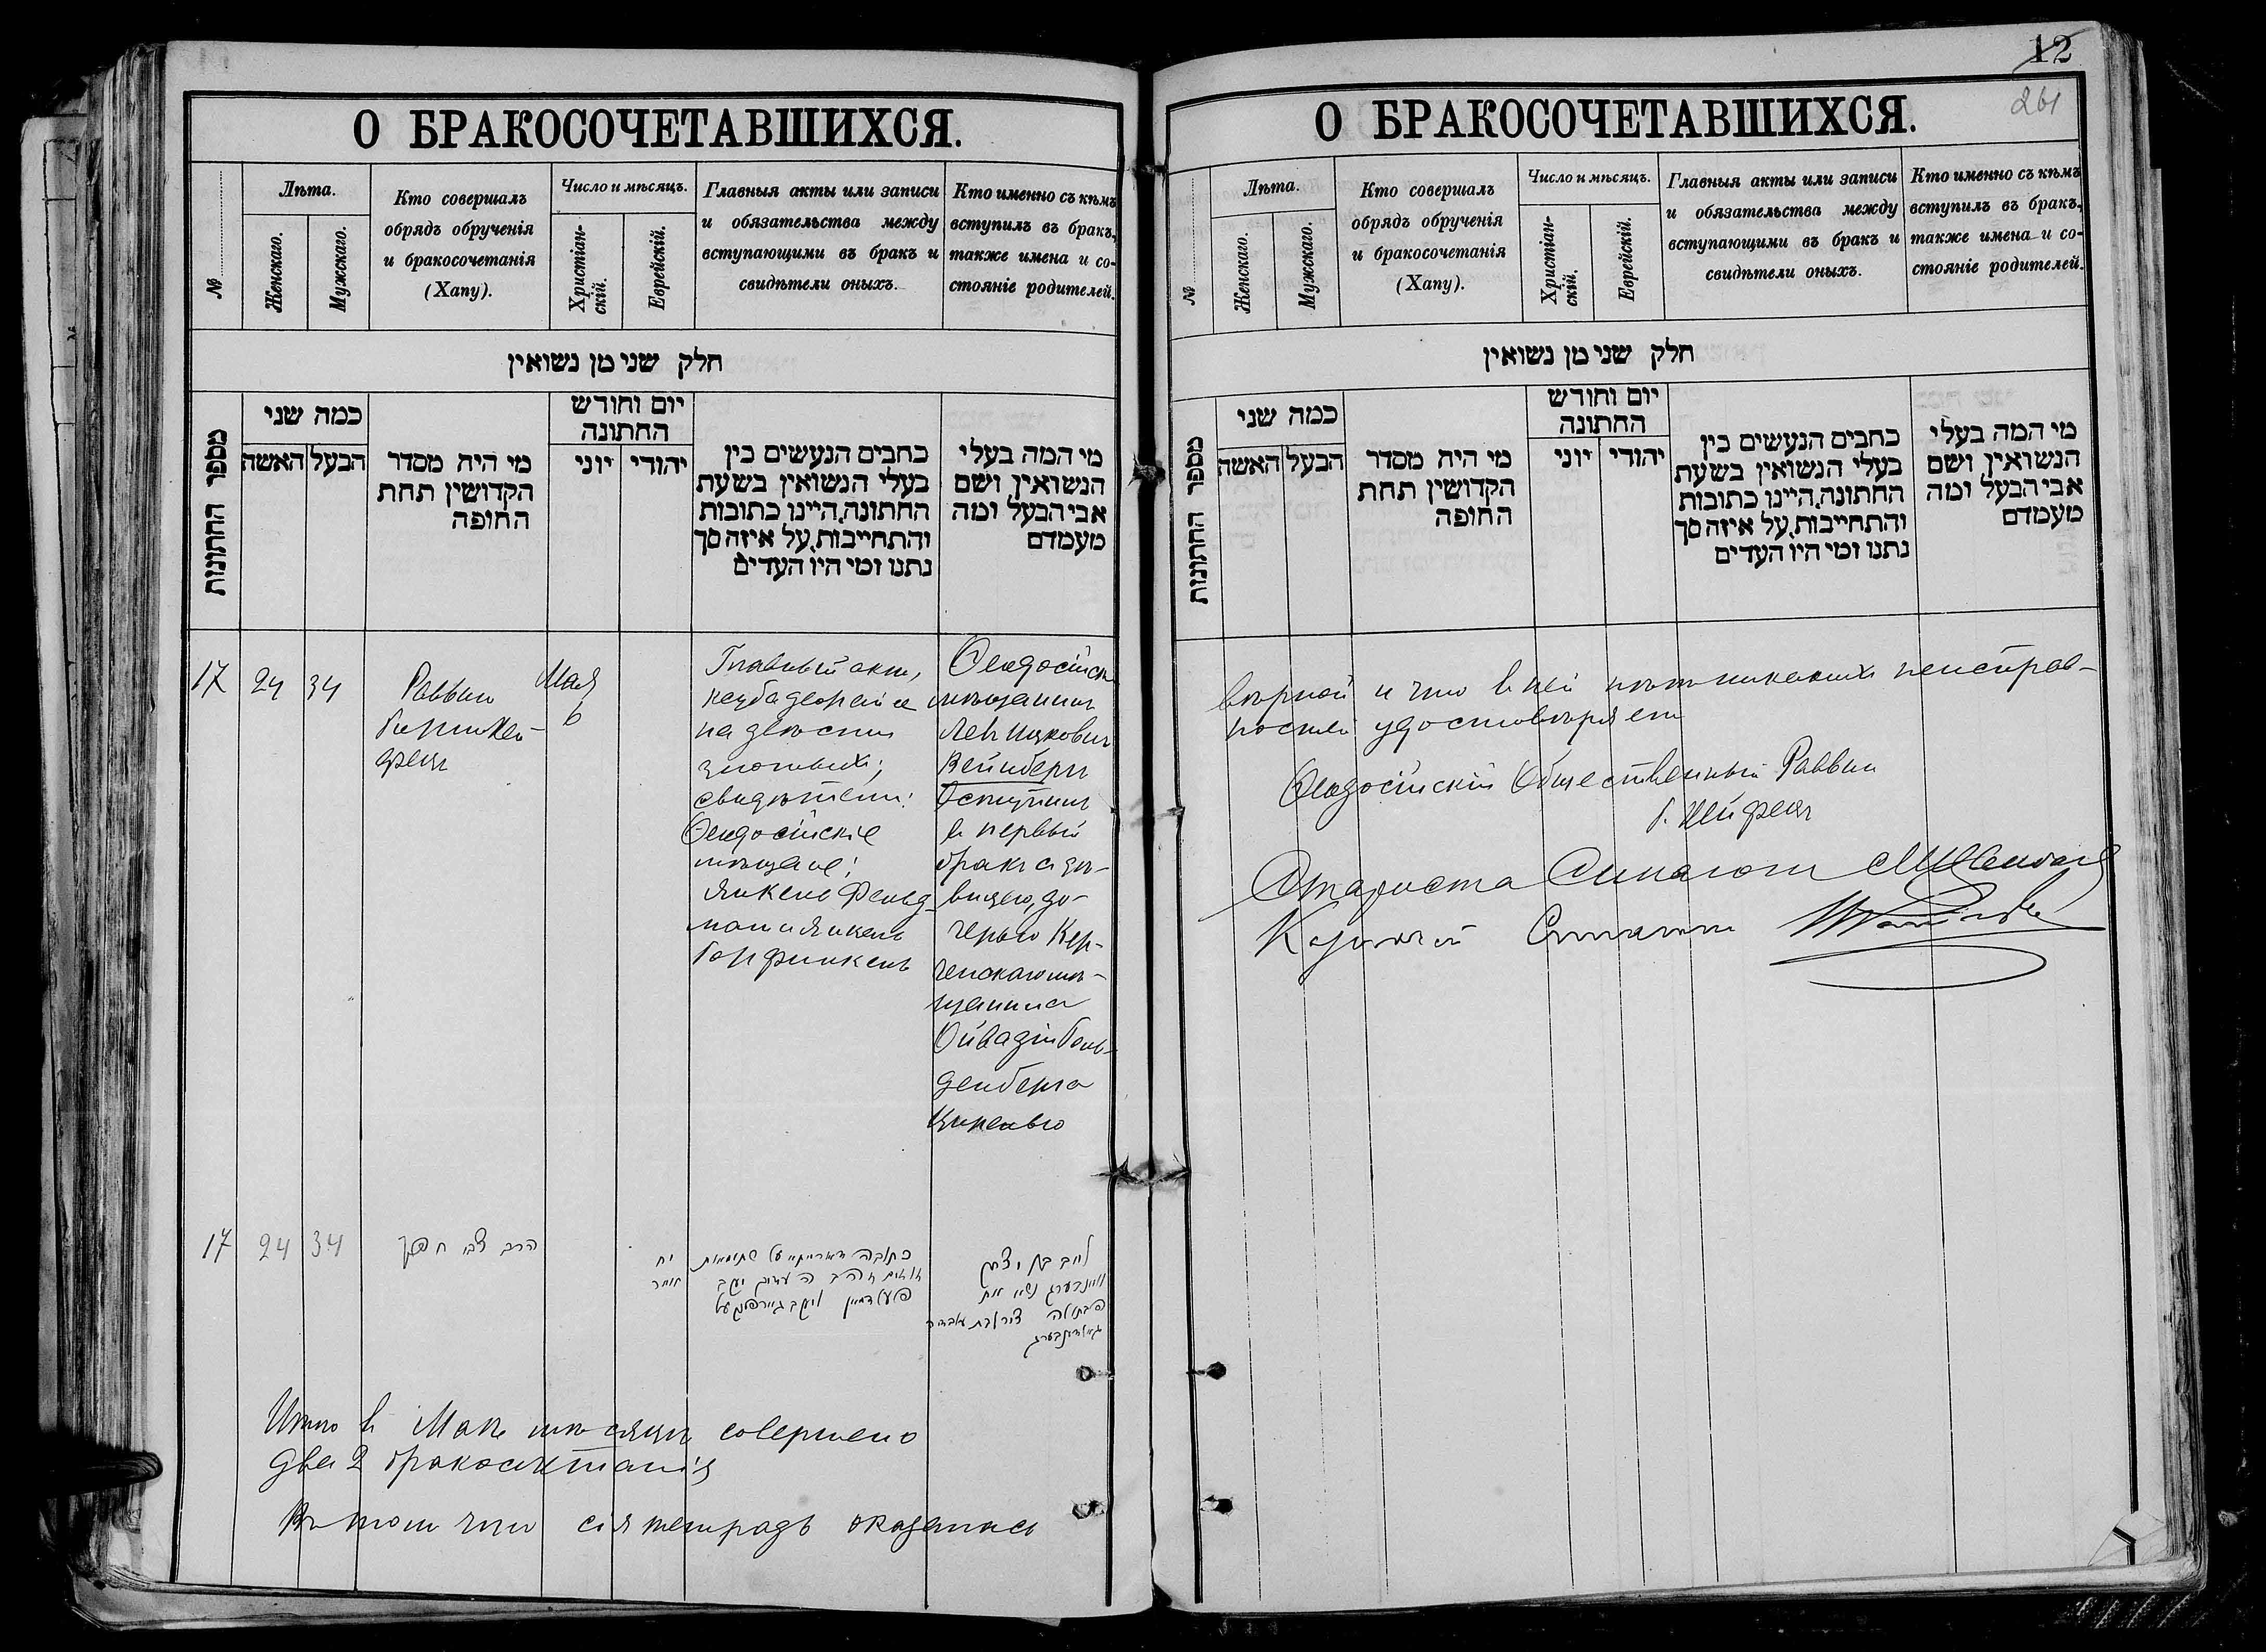 О БРАКОСОЧЕТАВШИХСЯ.
№
Лѣта.
Женскаго.
Мужскаго.
Кто совершалъ
обрядъ обрученія
и бракосочетанія
(Хапу).
Число и мѣсяцъ.
Христіан-
скій.
Еврейскій.
Главныя акты или записи
и обязательства между
вступающими въ бракъ и
свидѣтели оныхъ.
Кто именно съ кѣмъ
вступилъ въ бракъ,
также имена и со-
стояніе родителей.
חלק שני מן נשואין
מספר החתונות
כמה שני
הבעל האשה
מי היה מסדר
הקדושין תחת
החופה
יום וחודש
החתונה
יהודי יוני
כתבים הנעשים בין
בעלי הנשואין בשעת
החתונה, היינו כתובות
והתחייבות, על איזה סך
נתנו ומי היו העדים
מי המה בעלי
הנשואין ושם
אבי הבעל ומה
מעמדם
17
24
34
Раввин
фельд
Мая
6
Главный акт,
на двести
злотых;
свидѣтели:
Ѳеодосійскіе
мѣщане:
Янкель Фельд-
ман и Янкель
Гарфинкель
Ѳеодосійскій
мѣщанинъ
Лейб Ицкович
Вейнберг
вступил
в первый
бракъ с дѣ-
вицею, до-
черью Кер-
ченскаго мѣ-
щанина
Овадіи Голь-
денберга
17
24
34
הרב צבי
יח
אייר
כתובה דאורייתא על
יעקב
פעלדמאן
לייב בן יצחק
וויינבערג נשא את
הבתולה בת עובדיה
גאלדענבערג
Итого в Маѣ мѣсяцѣ совершено
два 2 бракосочетанія
В том что сія тетрадь оказалась
12
261
О БРАКОСОЧЕТАВШИХСЯ.
№
Лѣта.
Женскаго.
Мужскаго.
Кто совершалъ
обрядъ обрученія
и бракосочетанія
(Хапу).
Число и мѣсяцъ.
Христіан-
скій.
Еврейскій.
Главныя акты или записи
и обязательства между
вступающими въ бракъ и
свидѣтели оныхъ.
Кто именно съ кѣмъ
вступилъ въ бракъ,
также имена и со-
стояніе родителей.
חלק שני מן נשואין
מספר החתונות
כמה שני
הבעל האשה
מי היה מסדר
הקדושין תחת
החופה
יום וחודש
החתונה
יהודי יוני
כתבים הנעשים בין
בעלי הנשואין בשעת
החתונה, היינו כתובות
והתחייבות, על איזה סך
נתנו ומי היו העדים
מי המה בעלי
הנשואין ושם
אבי הבעל ומה
מעמדם
вѣрной и что в ней нѣт никаких неисправ-
ностей удостовѣряем
Ѳеодосійскій Общественный Раввин
Староста Синагоги
Казначей Синагоги